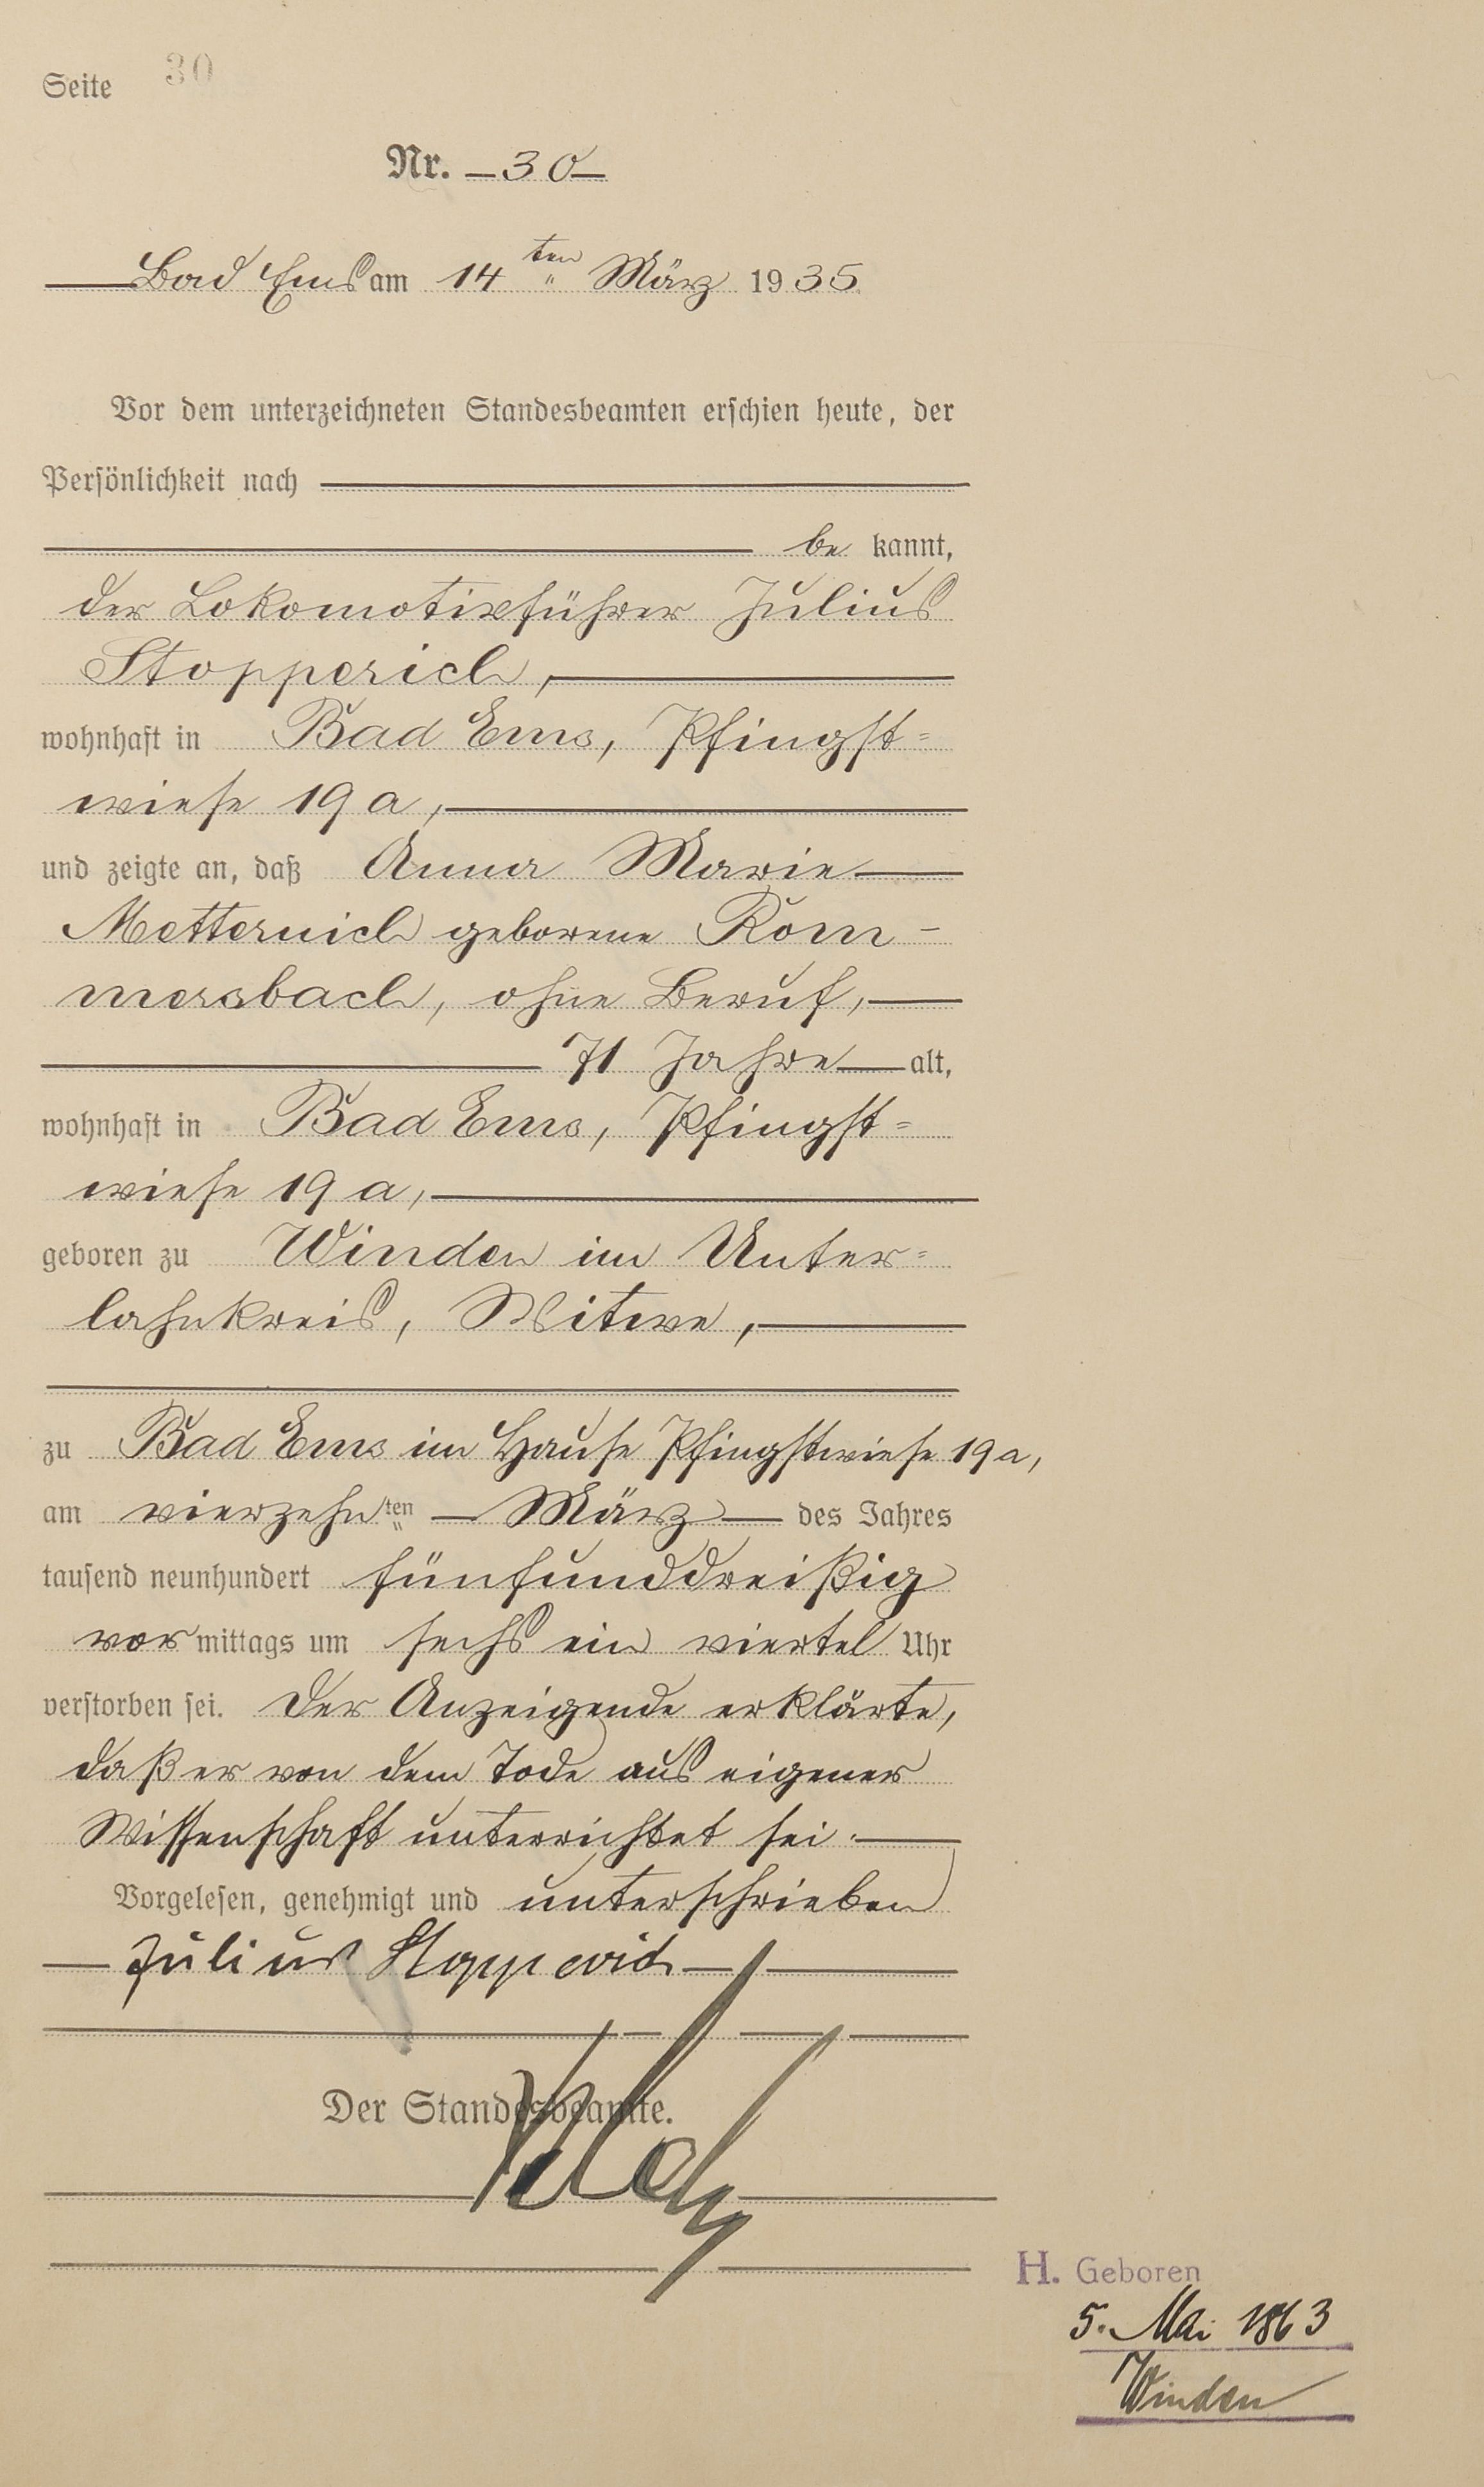 Seite 30
Nr. 30
Bad Ems am 14ten März 1935
Vor dem unterzeichneten Standesbeamten erschien heute, der
Persönlichkeit nach
be kannt,
der Lokomotivführer Julius
Stopperich,
wohnhaft in Bad Ems, Pfingst=
wiese 19a,
und zeigte an, daß Anna Marie
Metternich geborene Rom-
mersbach, ohne Beruf,
71 Jahre alt,
wohnhaft in Bad Ems, Pfingst=
wiese 19a,
geboren zu Winden im Unter=
lahnkreis, Witwe,
zu Bad Ems im Hause Pfingstwiese 19a,
am vierzehnten März des Jahres
tausend neunhundert fünfunddreißig
vor mittags um sechs ein viertel Uhr
verstorben sei. Der Anzeigende erklärte,
daß er von dem Tode aus eigener
Wissenschaft unterrichtet sei.
Vorgelesen, genehmigt und unterschrieben
Julius Stopperich
Der Standesbeamte.
H. Geboren
5. Mai 1863
Winden